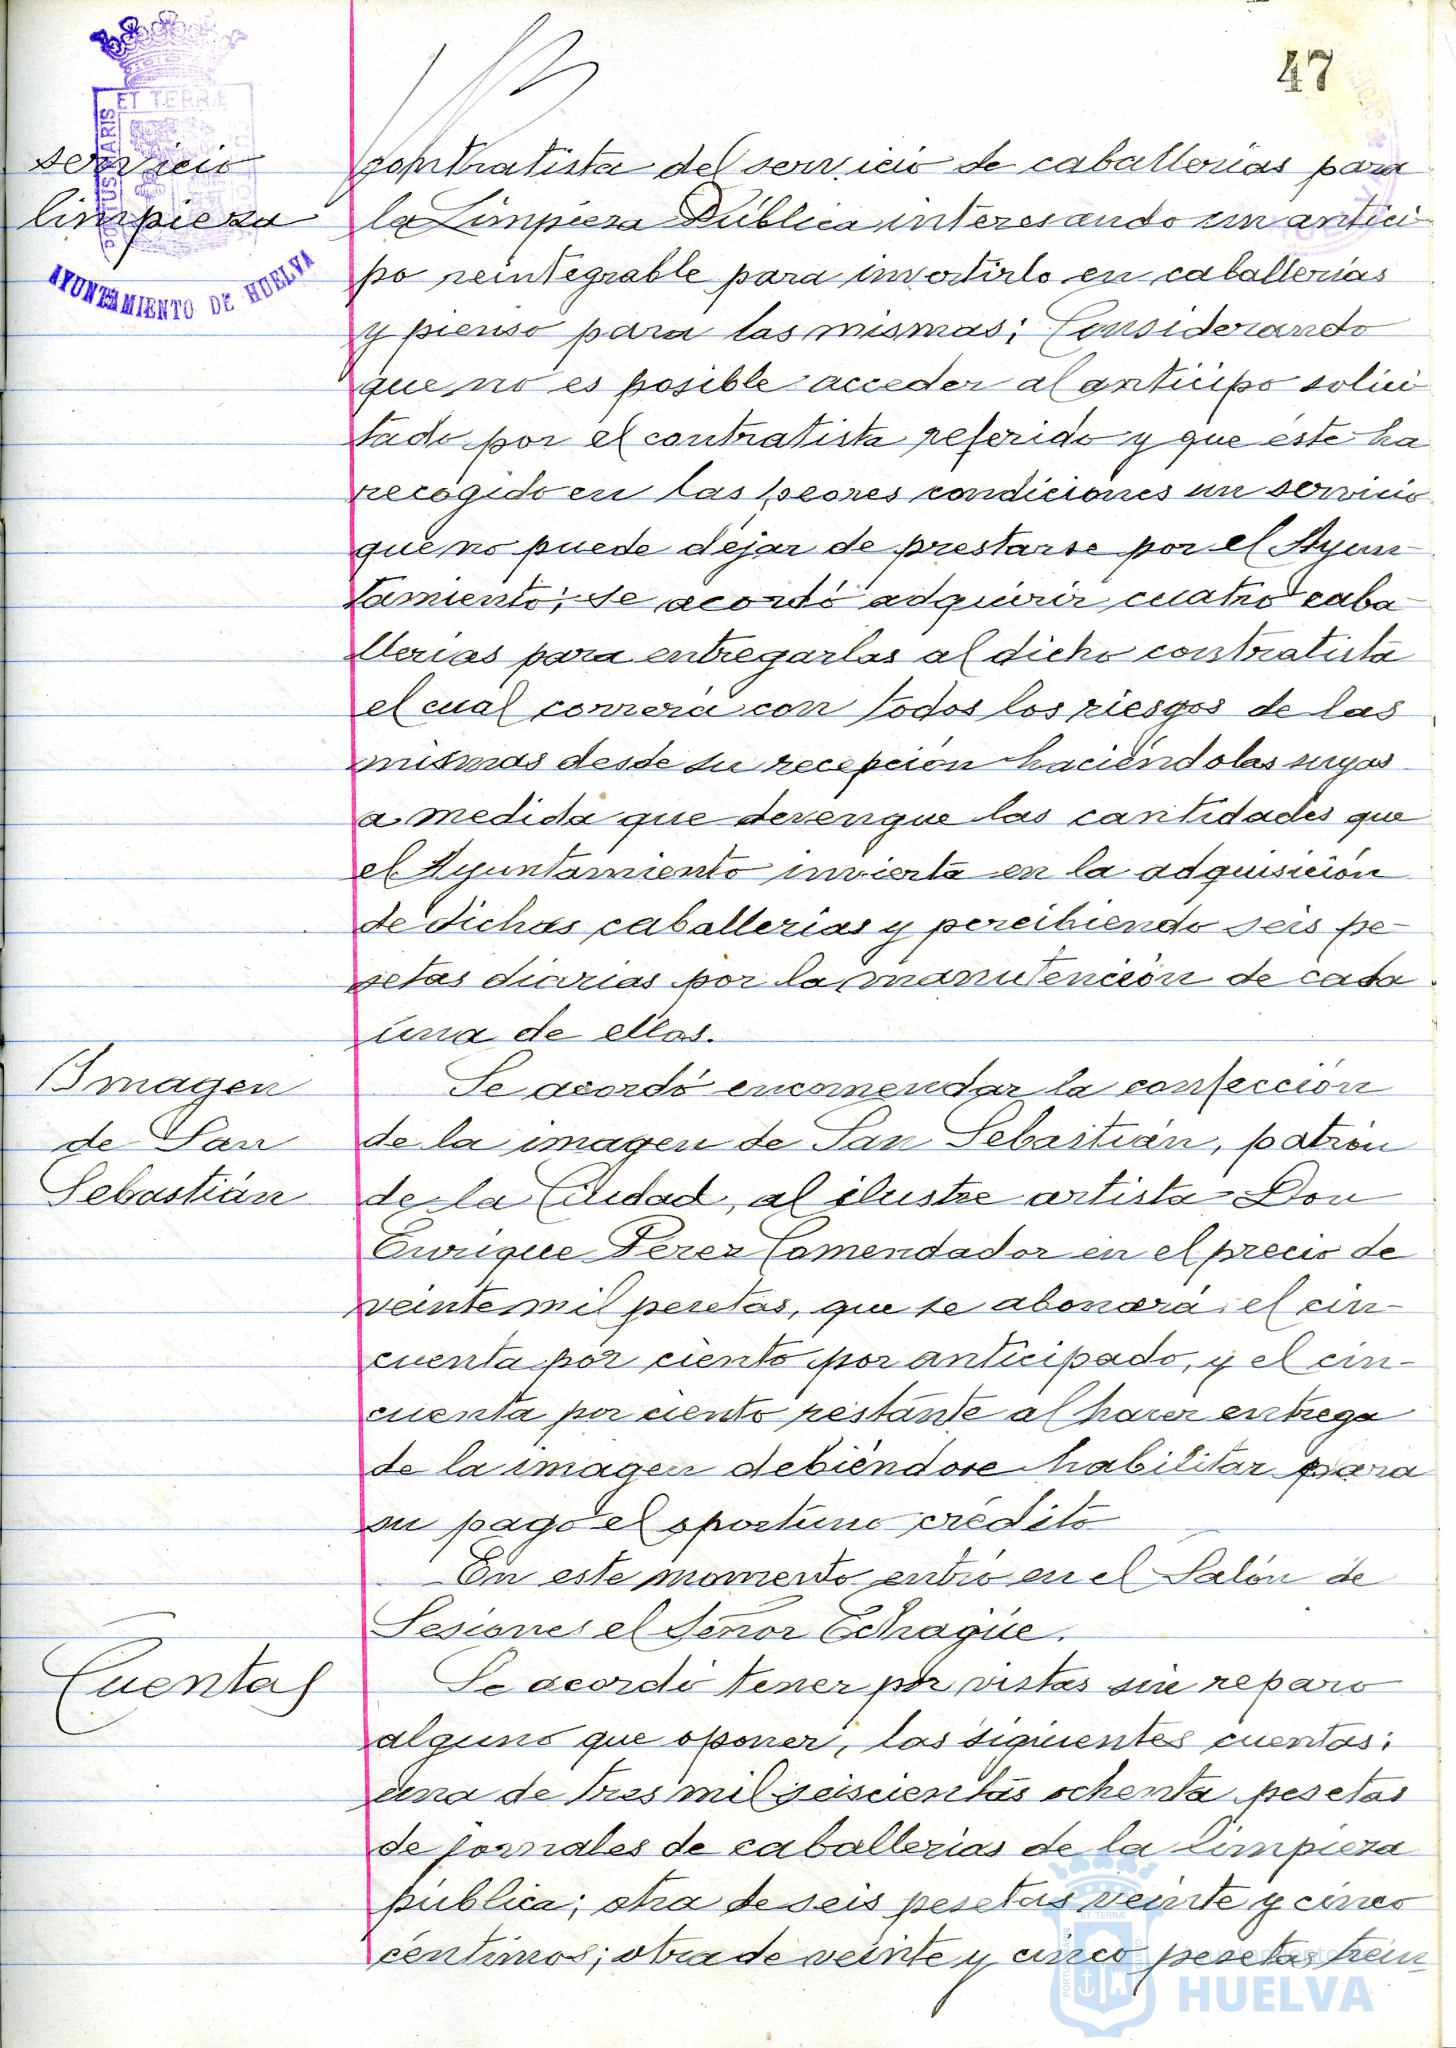 47
ET TERRÆ
PORTUS MARIS
AYUNTAMIENTO DE HUELVA
servicio
limpieza
contratista del servicio de caballerías para
la Limpieza Pública interesando un antici-
po reintegrable para invertirlo en caballerías
y pienso para las mismas; Considerando
que no es posible acceder al anticipo solici-
tado por el contratista referido y que éste ha
recogido en las peores condiciones un servicio
que no puede dejar de prestarse por el Ayun-
tamiento; se acordó adquirir cuatro caba-
llerías para entregarlas al dicho contratista
el cual correrá con todos los riesgos de las
mismas desde su recepción haciéndolas suyas
a medida que devengue las cantidades que
el Ayuntamiento invierta en la adquisición
de dichas caballerías y percibiendo seis pe-
setas diarias por la manutención de cada
una de ellas.
Imagen
de San
Sebastián
Se acordó encomendar la confección
de la imagen de San Sebastián, patrón
de la Ciudad, al ilustre artista Don
Enrique Pérez Comendador en el precio de
veinte mil pesetas, que se abonará el cin-
cuenta por ciento por anticipado, y el cin-
cuenta por ciento restante al hacer entrega
de la imagen debiéndose habilitar para
su pago el oportuno crédito
En este momento entró en el Salón de
Sesiones el Señor Echagüe.
Cuentas
Se acordó tener por vistas sin reparo
alguno que oponer, las siguientes cuentas:
una de tres mil seiscientas ochenta pesetas
de jornales de caballerías de la limpieza
pública; otra de seis pesetas veinte y cinco
céntimos; otra de veinte y cinco pesetas trein-
HUELVA